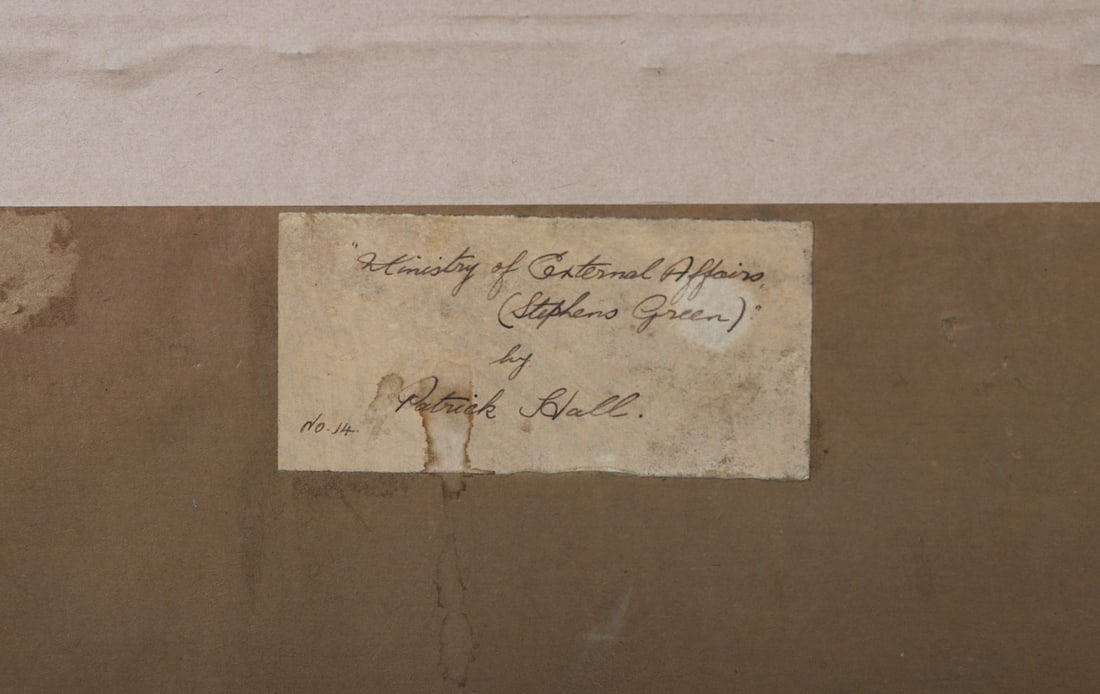 "Ministry of External Affairs,
(Stephens Green)"
by
Patrick Hall.
No. 14.